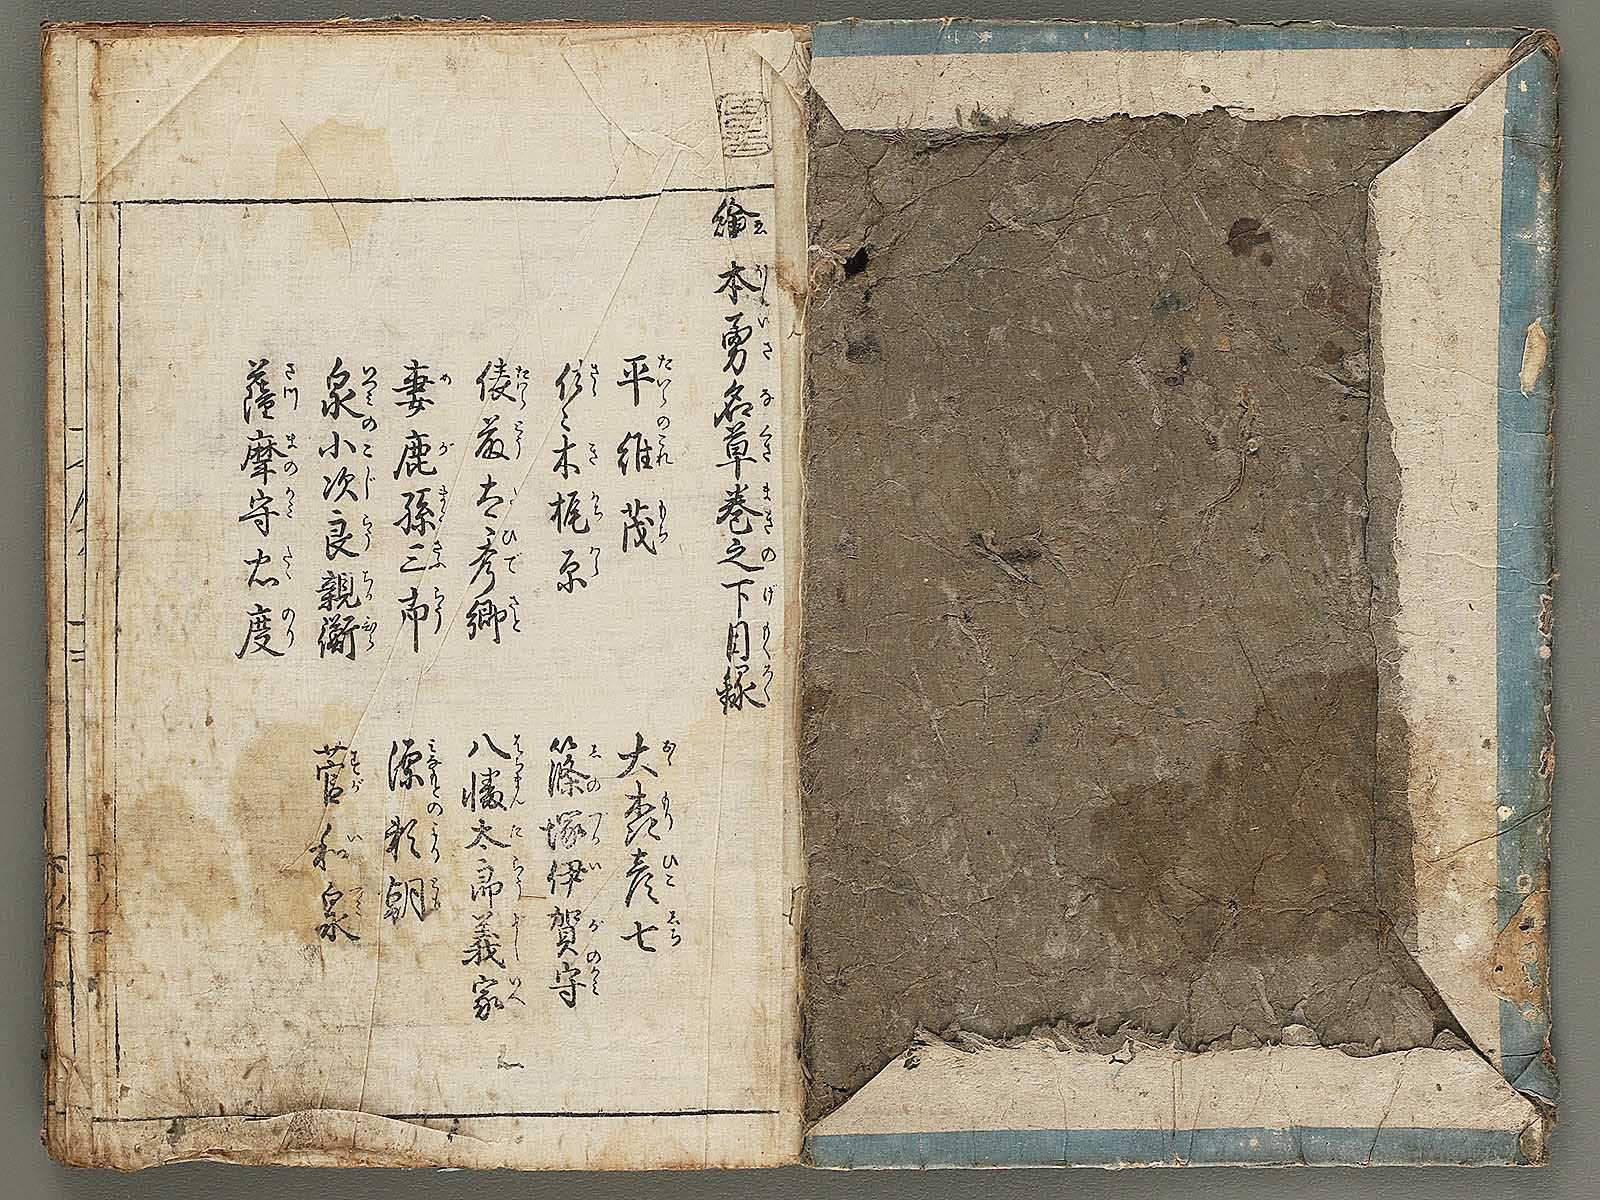 繪本勇名草巻之下目録
平維茂
佐々木梶原
俵藤太秀郷
妻鹿孫三郎
泉小次郎親衡
薩摩守忠度
大森彦七
篠塚伊賀守
八幡太郎義家
源頼朝
菅和泉